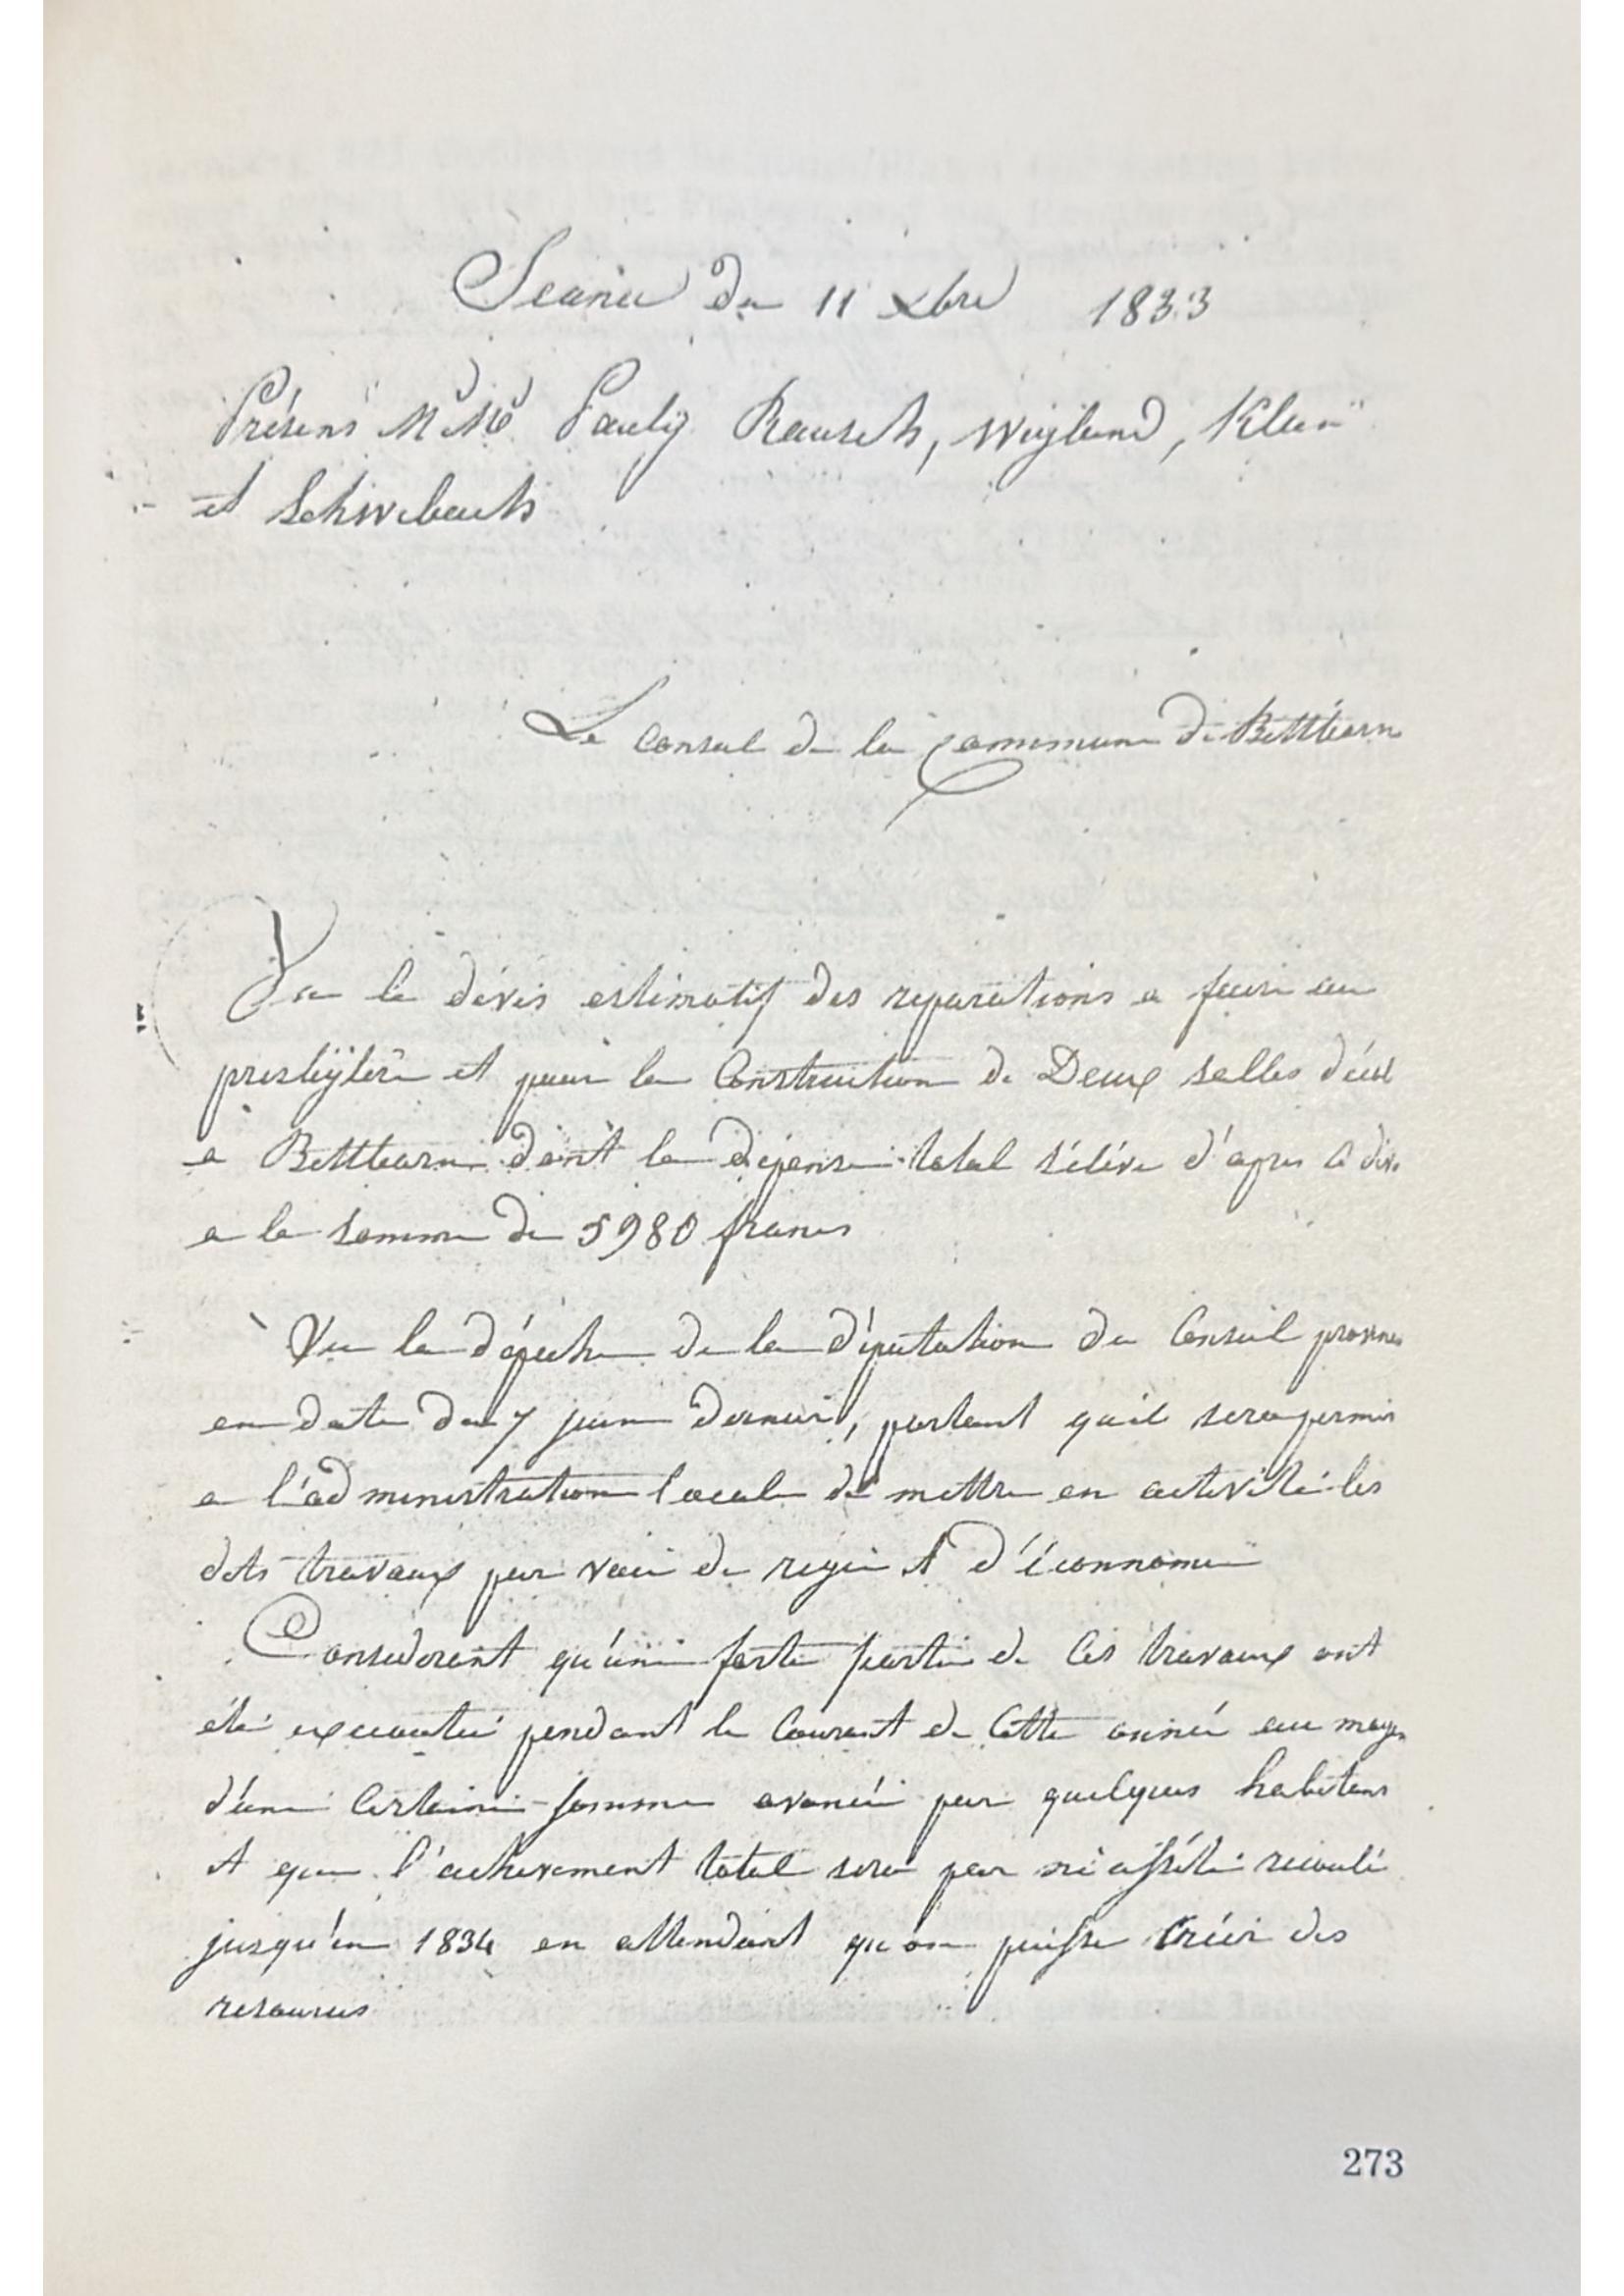 Seance du 11 Xbre 1833
Présens MM Pauly Rausch, Weyland, Klein
et Schwebach
Le Conseil de la Commune de Bettborn
Vu le dévis estimatif des reparations a faire au
presbÿtère et pour la Construction de Deux salles d'écol
a Bettborn dont la dépense total s'éléve d'apres le dévi
a la somme de 5980 francs
Vu la dépéche de la députation du Conseil provinc
en date du 7 juin dernier, portant quil sera permis
a l'administration local de mettre en activité les
dits travaux par voie de regie et d'éconnomie
Considerent qu'une forte partie de Ces travaux ont
été exxecutée pendant le Courant de Cette année au moyen
d'une Certaine somme avancée par quelques habitans
et que l'achevement total sera par nécessité reculé
jusqu'en 1834 en attendant qu'on puisse Créér des
resources
273